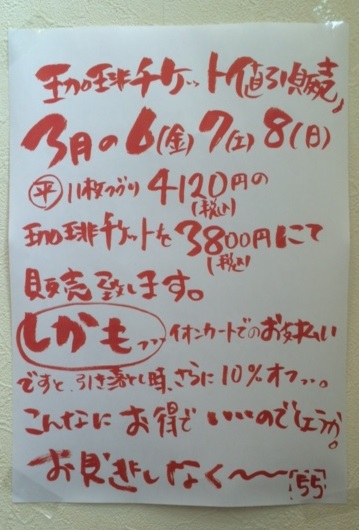 珈琲チケット値引販売
3月の6(金)7(土)8(日)
㊥平 11枚つづり4120円の
(税込)
珈琲チケットを3800円にて
(税込)
販売致します。
しかもッッッ イオンカードでのお支払い
ですと、引き落とし時、さらに10%オフッ。
こんなにお得でいいのでしょうか。
お見逃しなく〜〜「55」